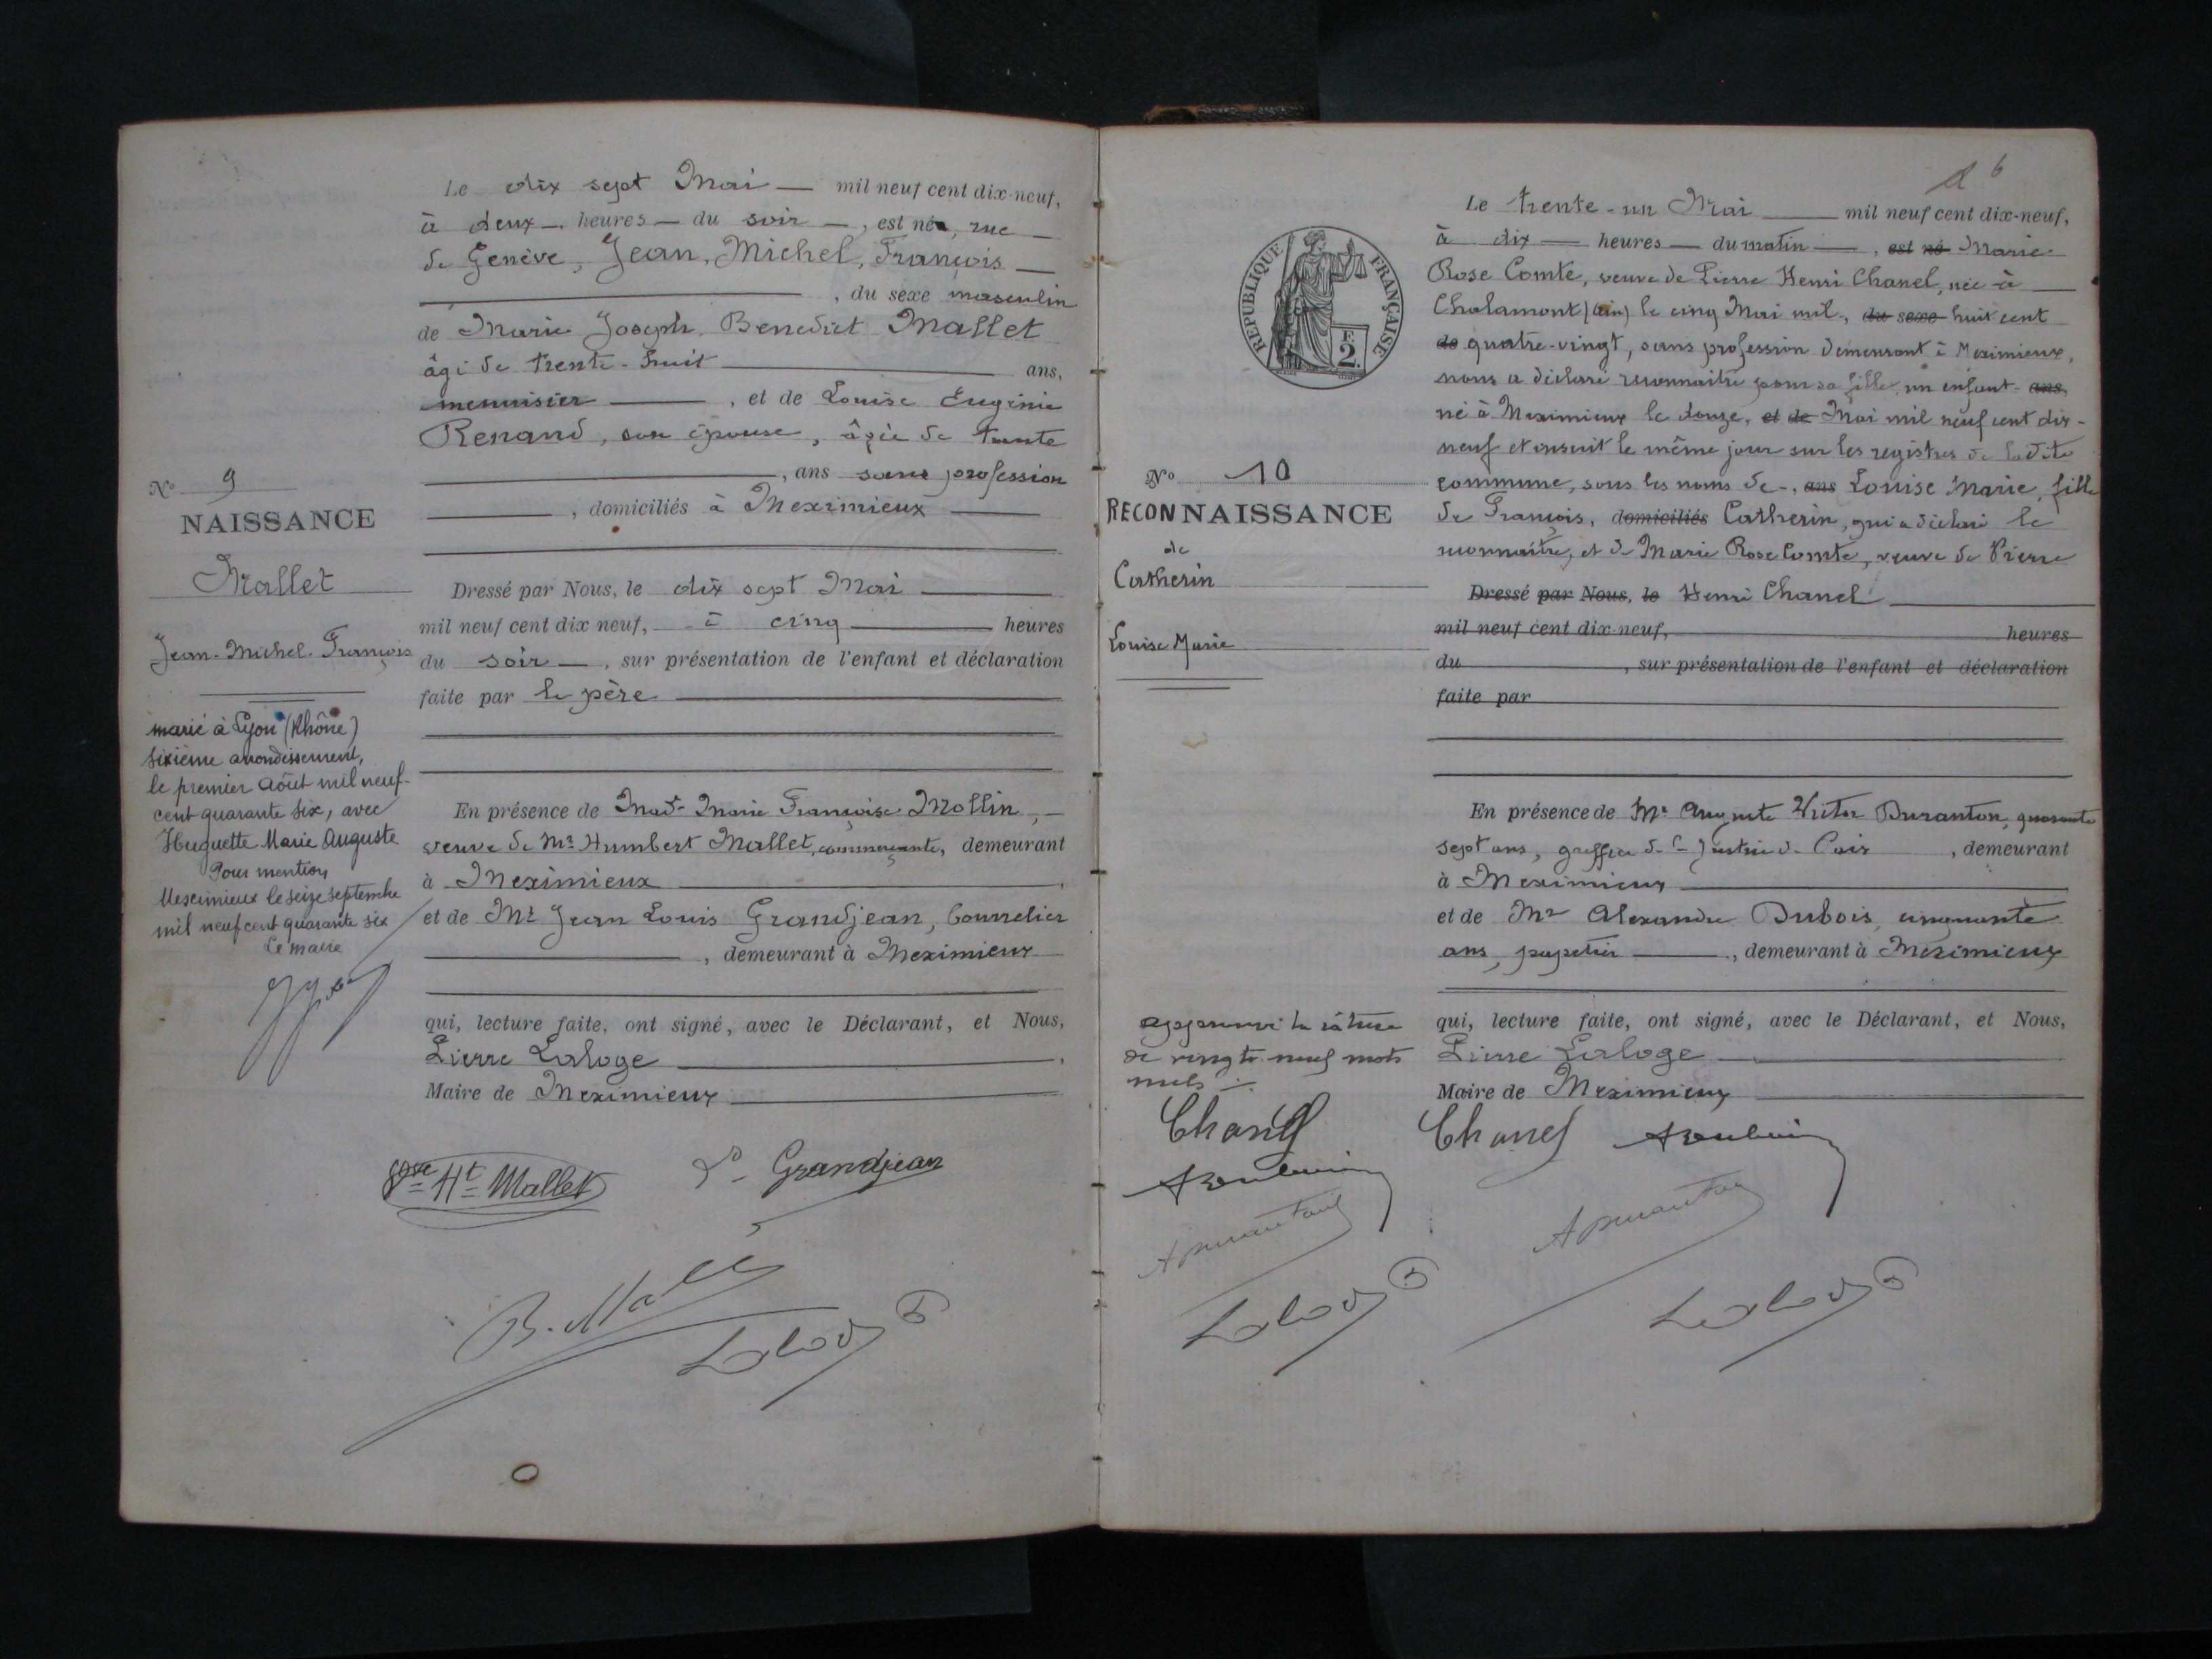 Le dix sept Mai — mil neuf cent dix-neuf,
à deux — heures — du soir —, est né, rue —
de Genève, Jean, Michel, François —
, du sexe masculin
de Marie Joseph Benedict Mallet
âgé de trente-huit ans,
menuisier, et de Louise Eugénie
Renand, son épouse, âgée de trente
, ans sans profession
, domiciliés à Meximieux
Nº 9
NAISSANCE
Mallet
Jean-Michel-François
Dressé par Nous, le dix sept Mai
mil neuf cent dix neuf, à cinq heures
du soir —, sur présentation de l'enfant et déclaration
faite par le père
marié à Lyon (Rhône)
sixième arrondissement,
le premier Août mil neuf-
cent quarante six, avec
Huguette Marie Auguste
Pour mention
Meximieux le seize septembre
mil neuf cent quarante six
Le maire
En présence de Mad. Marie Françoise Mollin, —
veuve de Mr Humbert Mallet, commerçante, demeurant
à Meximieux
et de Mr Jean Louis Grandjean, bourrelier
, demeurant à Meximieux
qui, lecture faite, ont signé, avec le Déclarant, et Nous,
Pierre Laloge
Maire de Meximieux
Vve Ht Mallet
Grandjean
B. Mallet
Laloge
6
RÉPUBLIQUE FRANÇAISE
F. 2
Le trente-un Mai mil neuf cent dix-neuf,
à dix — heures — du matin —, est né Marie
Rose Comte, veuve de Pierre Henri Chanel, née à
Chalamont (Ain) le cinq Mai mil, du sexe huit cent
de quatre-vingt, sans profession demeurant à Meximieux,
nous a déclaré reconnaître pour sa fille un enfant ans,
né à Meximieux le douze, et de Mai mil neuf cent dix-
neuf et inscrit le même jour sur les registres de ladite
commune, sous les noms de —, ans Louise Marie, fille
de François, domiciliés Catherin, qui a déclaré le
reconnaître, et de Marie Rose Comte, veuve de Pierre
Dressé par Nous, le Henri Chanel
mil neuf cent dix-neuf, heures
du , sur présentation de l'enfant et déclaration
faite par
Nº 10
RECONNAISSANCE
de
Catherin
Louise Marie
En présence de Mr Auguste Victor Duranton, quarante
sept ans, greffier de la Justice de Paix, demeurant
à Meximieux
et de Mr Alexandre Dubois, cinquante
ans, papetier, demeurant à Meximieux
qui, lecture faite, ont signé, avec le Déclarant, et Nous,
Pierre Laloge
Maire de Meximieux
Approuvé la râture
de vingt-neuf mots
nuls
Chanel
Chanel
A Duranton
A Duranton
Laloge
Laloge